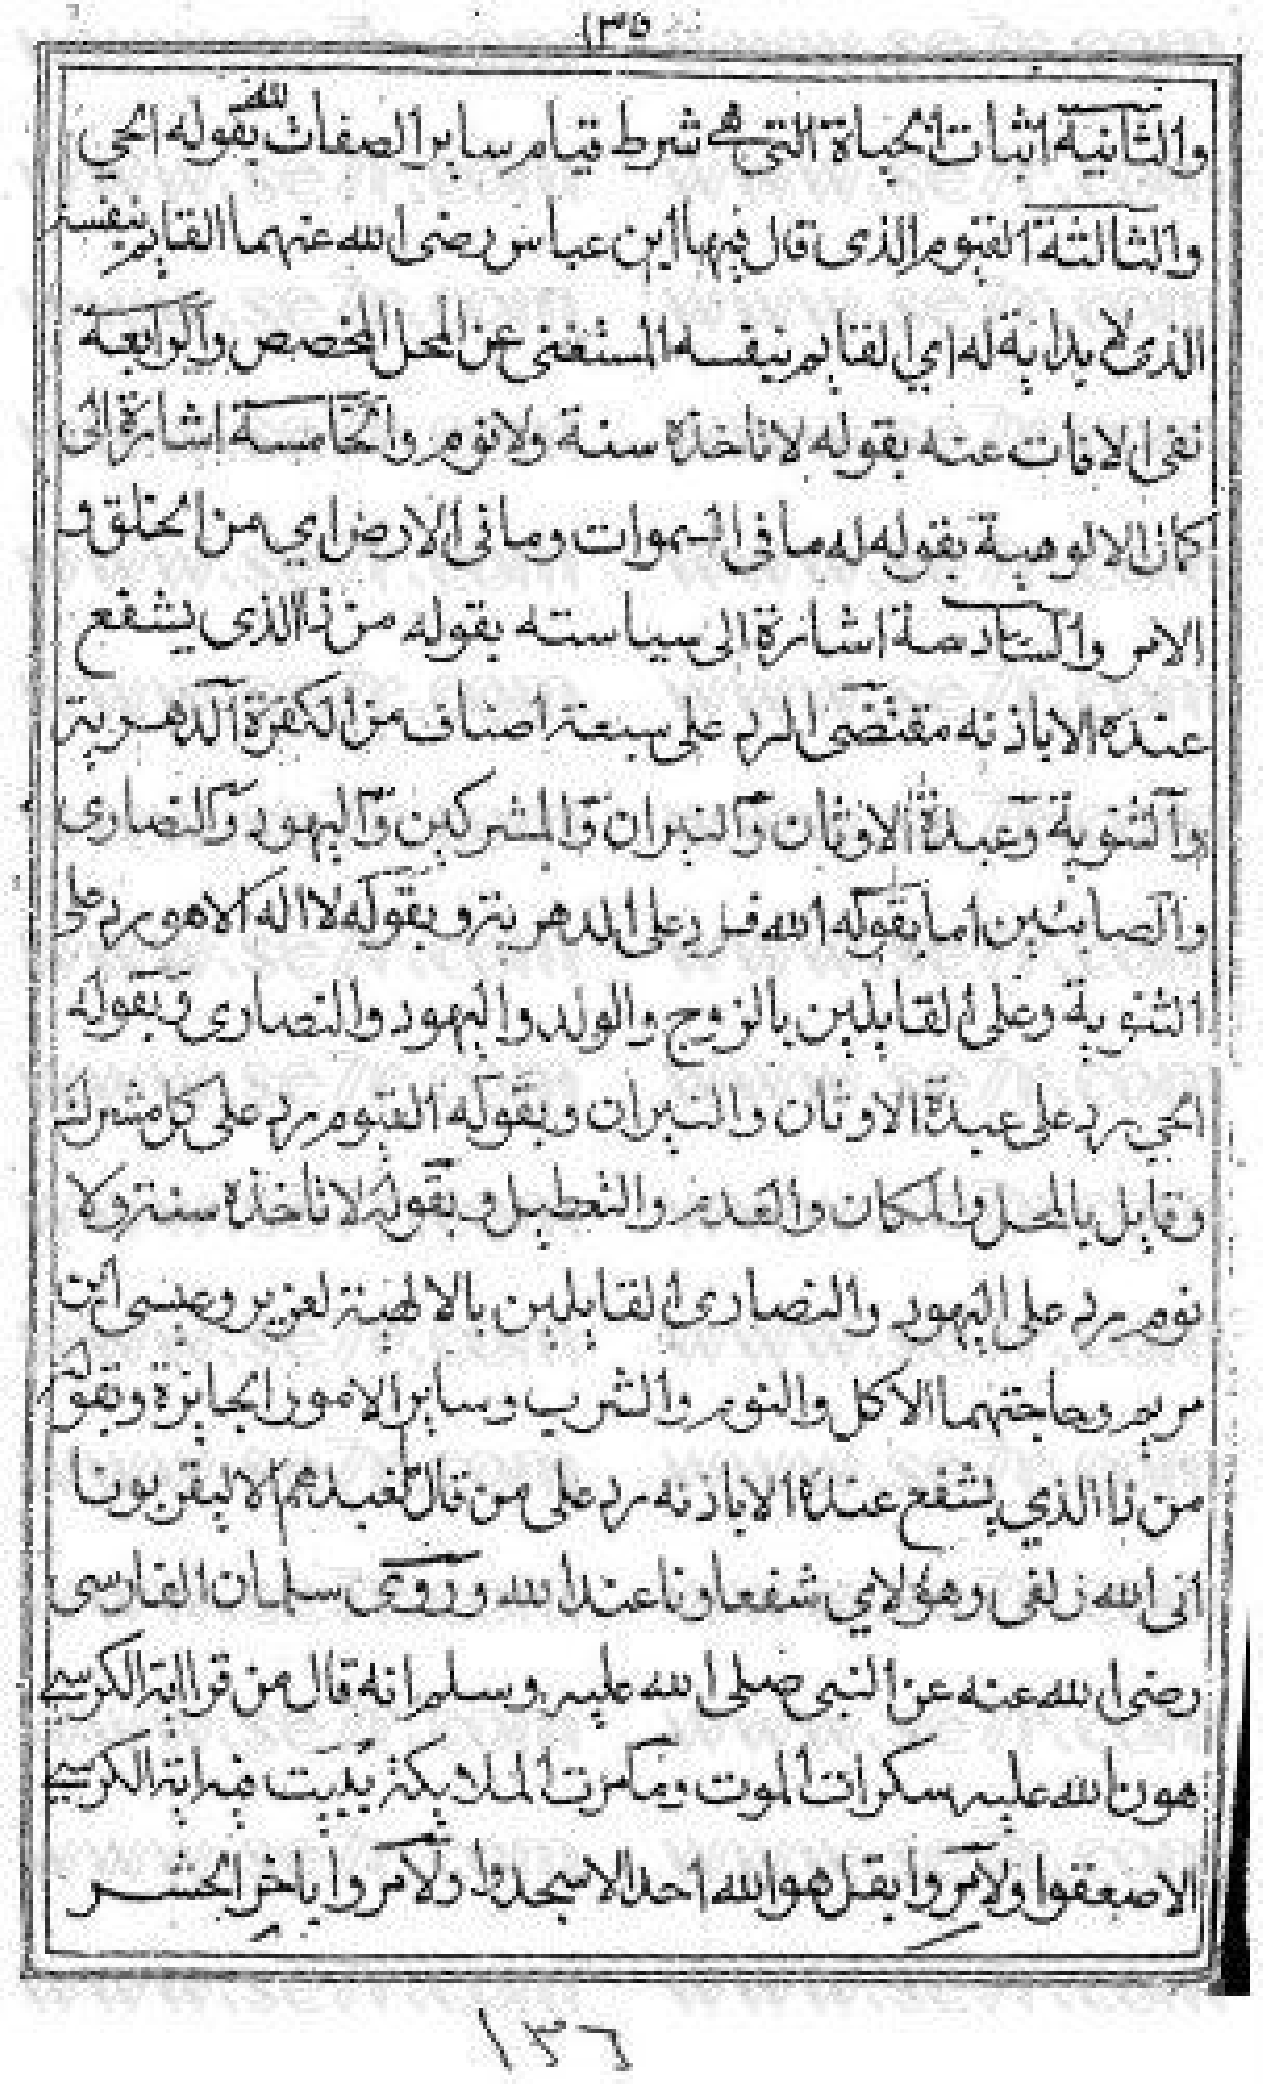 ١٣٥
والثانية اثبات الحياة التي هي شرط قيام ساير الصفات لله بقوله الحي
والثالثة القيوم الذى قال فيها ابن عباس رضى الله عنهما القايم بنفسه
الذى لا بداية له اي القايم بنفسه المستغنى عن المحل المخصص والرابعة
نفى الافات عنه بقوله لا تاخذه سنة ولا نوم والخامسة اشارة الى
كمال الالوهية بقوله له ما فى السموات وما فى الارض اي من الخلق و
الامر والسادسة اشارة الى سياسته بقوله من ذا الذى يشفع
عنده الا باذنه مقتضى الرد على سبعة اصناف من الكفرة الدهرية
والثنوية وعبدة الاوثان والنيران والمشركين واليهود والنصارى
والصابئين اما بقوله الله فرد على الدهرية وبقوله لا اله الا هو رد على
الثنوية وعلى القايلين بالزوج والولد واليهود والنصارى وبقوله
الحي رد على عبدة الاوثان والنيران وبقوله القيوم رد على كل مشرك
وقايل بالمحل والمكان والقدم والتعطيل وبقوله لا تاخذه سنة ولا
نوم رد على اليهود والنصارى القايلين بالالهية لعزير وعيسى ابن
مريم وحاجتهما الاكل والنوم والشرب وساير الامور الجايزة وبقوله
من ذا الذي يشفع عنده الا باذنه رد على من قال نعبدهم الا ليقربونا
الى الله زلفى وهؤلاي شفعاونا عند الله وروى سلمان الفارسى
رضى الله عنه عن النبى صلى الله عليه وسلم انه قال من قرا اية الكرسي
هون الله عليه سكرات الموت وما مرت الملايكة ببيت فيه اية الكرسي
الا صعقوا ولا مروا بقل هو الله احد الا سجدوا ولا مروا باخر الحشر
١٣٦